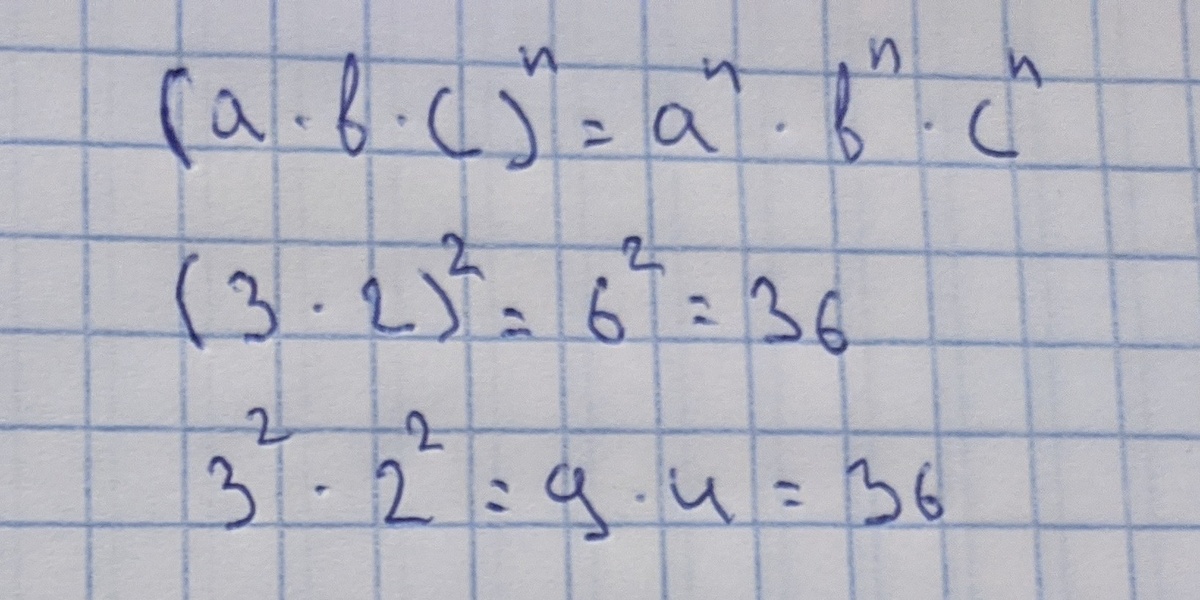 (a · b · c)ⁿ = aⁿ · bⁿ · cⁿ
(3 · 2)² = 6² = 36
3² · 2² = 9 · 4 = 36